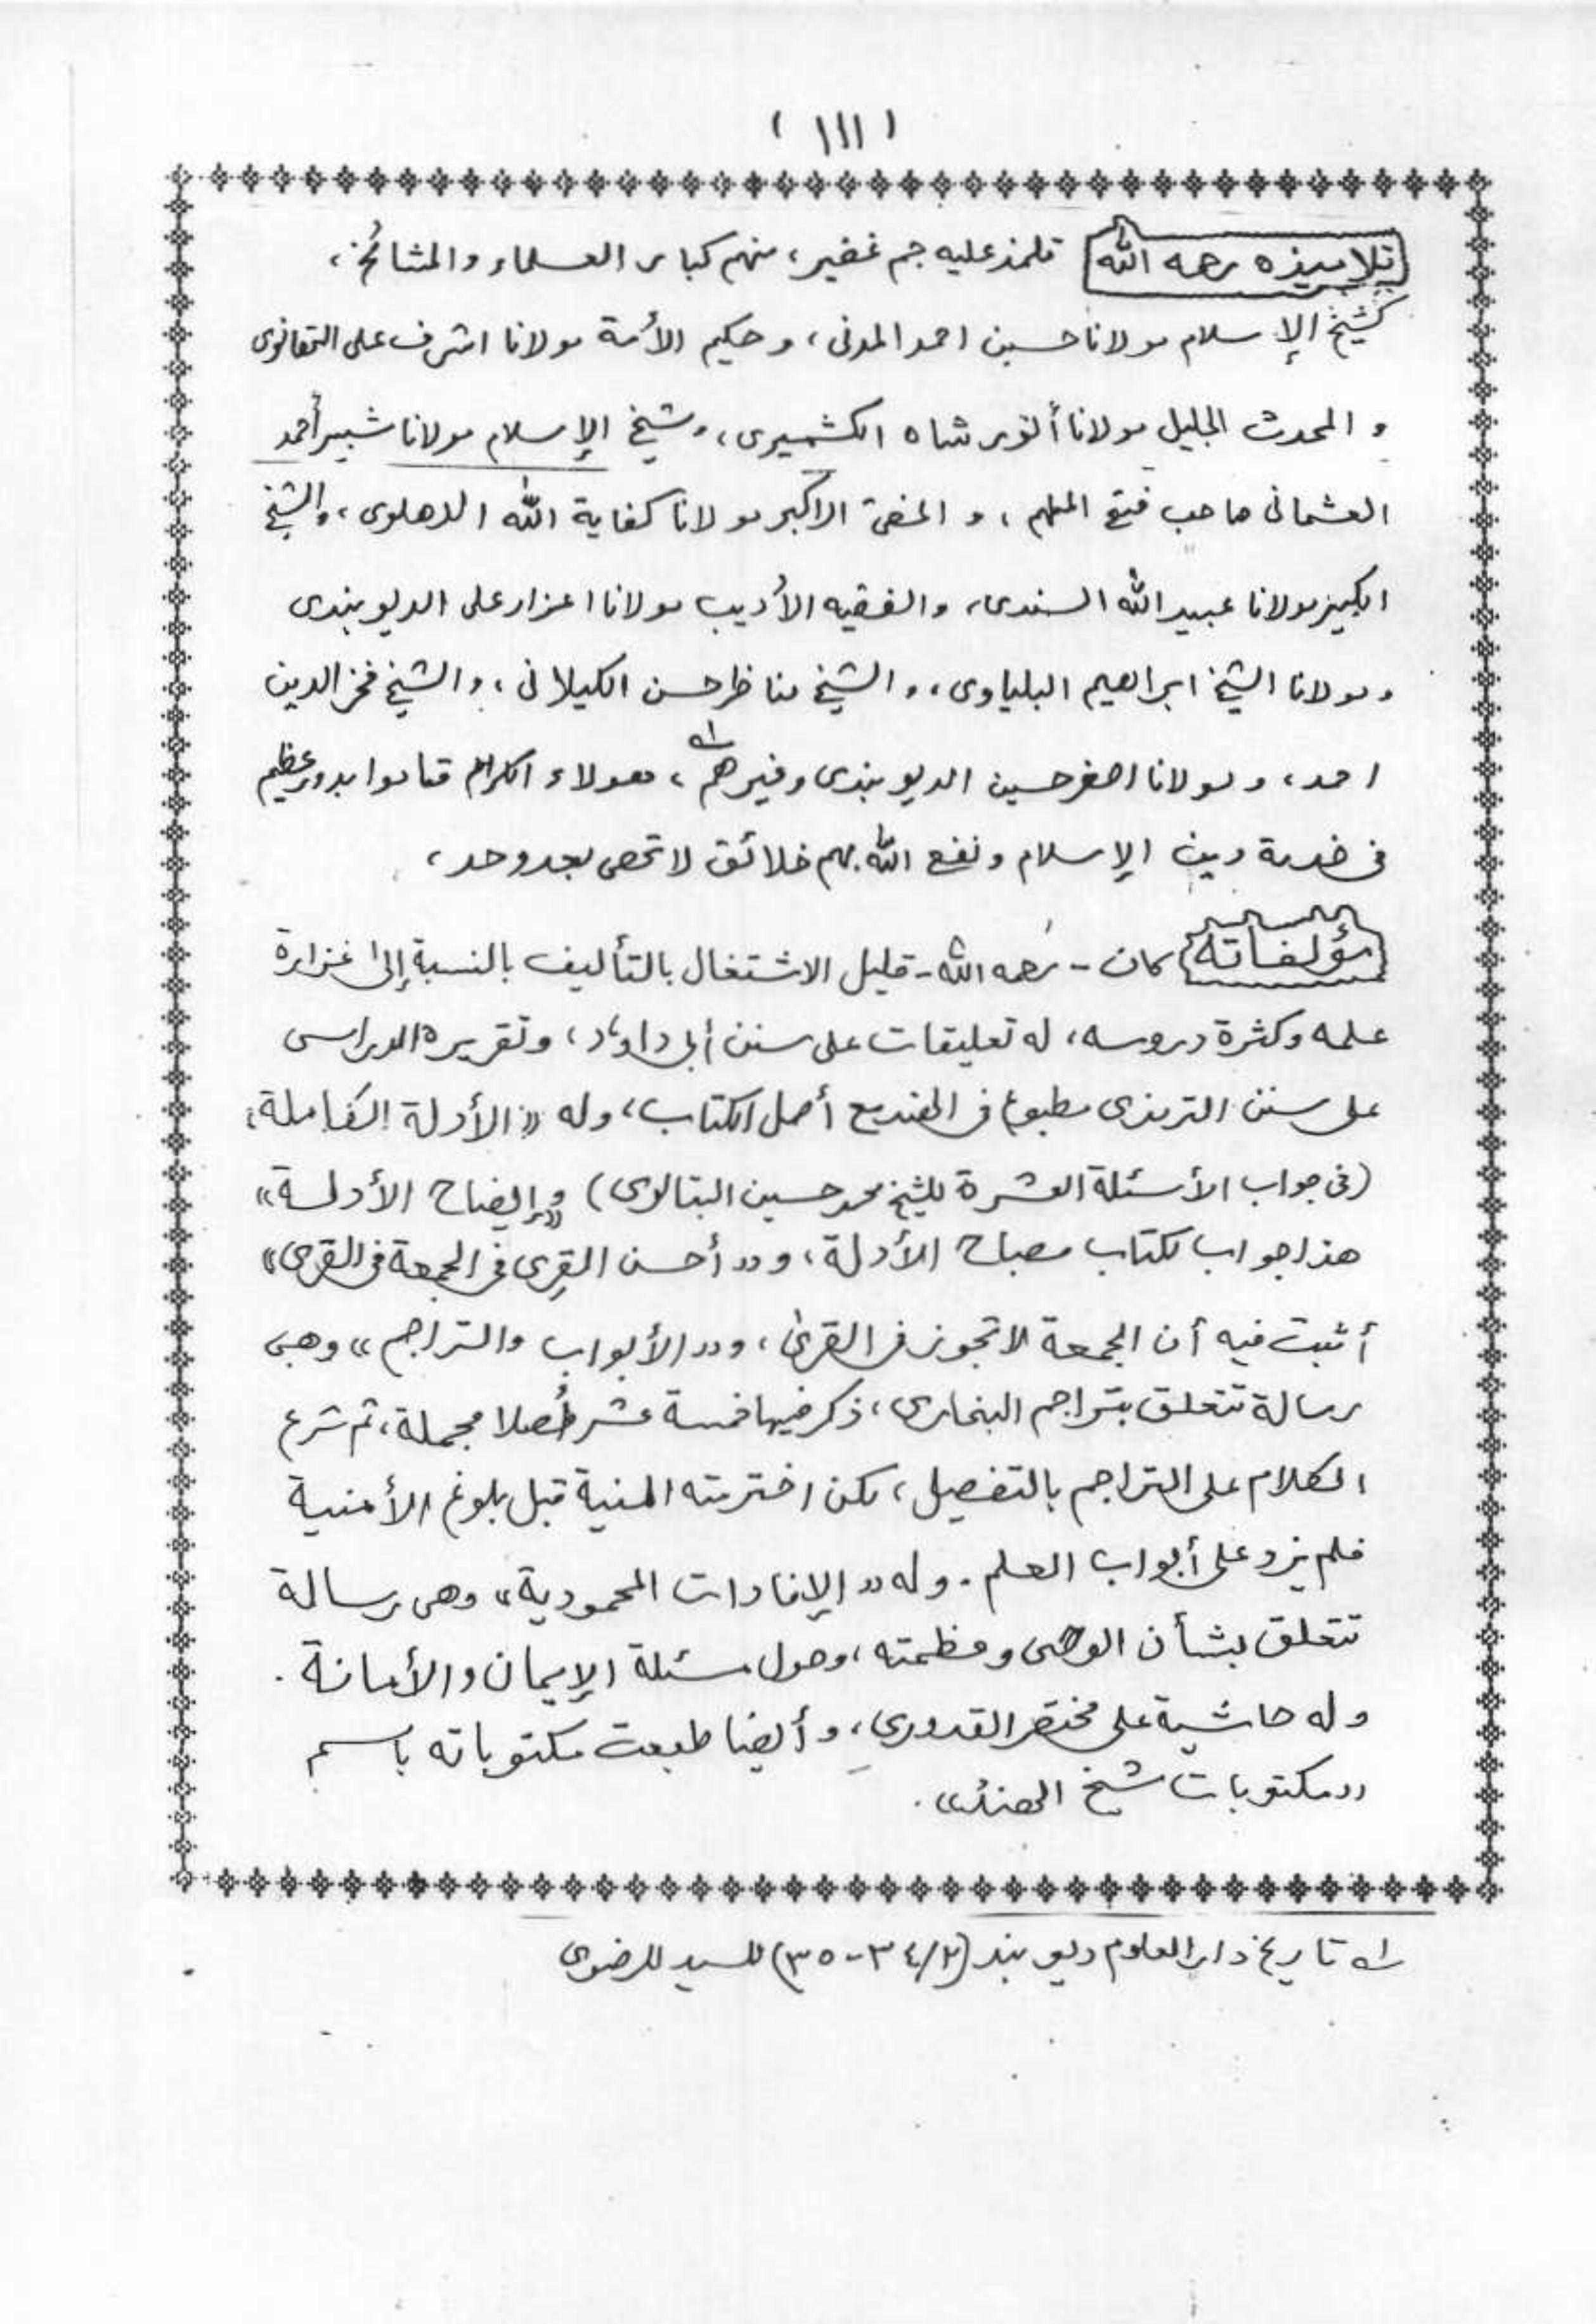 ( ١١١ )
تلاميذه رحمه الله تلمذ عليه جم غفير، منهم كبار العلماء والمشائخ،
كشيخ الإسلام مولانا حسين احمد المدنى، وحكيم الأمة مولانا اشرف على التهانوى
و المحدث الجليل مولانا أنور شاه الكشميرى، وشيخ الإسلام مولانا شبير أحمد
العثمانى صاحب فتح الملهم، و المفتى الاكبر مولانا كفاية الله الدهلوى، والشيخ
الكبير مولانا عبيد الله السندى، والفقيه الأديب مولانا اعزاز على الديوبندى
ومولانا الشيخ ابراهيم البلياوى، والشيخ مناظر حسن الكيلانى، والشيخ فخر الدين
احمد، ومولانا اصغر حسين الديوبندى وغيرهم ١ـه، هولاء الكرام قاموا بدور عظيم
فى خدمة دين الإسلام ونفع الله بهم خلائق لا تحصى بعد وحد،
مؤلفاته كان - رحمه الله - قليل الاشتغال بالتأليف بالنسبة إلى غزارة
علمه وكثرة دروسه، له تعليقات على سنن أبى داود، وتقريره الدراسى
على سنن الترمذى مطبوع فى الهند مع أصل الكتاب، وله «الأدلة الكاملة»
(فى جواب الأسئلة العشرة للشيخ محمد حسين البتالوى) و«إيضاح الأدلة»
هذا جواب لكتاب مصباح الأدلة، و«أحسن القِرى فى الجمعة فى القرى»
أثبت فيه أن الجمعة لا تجوز فى القرى، و«الأبواب والتراجم» وهى
رسالة تتعلق بتراجم البخارى، ذكر فيها خمسة عشر أصلا مجملة، ثم شرع
الكلام على التراجم بالتفصيل، لكن اخترمته المنية قبل بلوغ الأمنية
فلم يزد على أبواب العلم. وله «الإفادات المحمودية» وهى رسالة
تتعلق بشأن الوحى وعظمته، وحول مسئلة الإيمان والأمانة.
وله حاشية على مختصر القدورى، وأيضا طبعت مكتوباته باسم
«مكتوبات شيخ الهند».
١ـه تاريخ دار العلوم ديوبند (٢/٣٤-٣٥) للسيد للرضوى